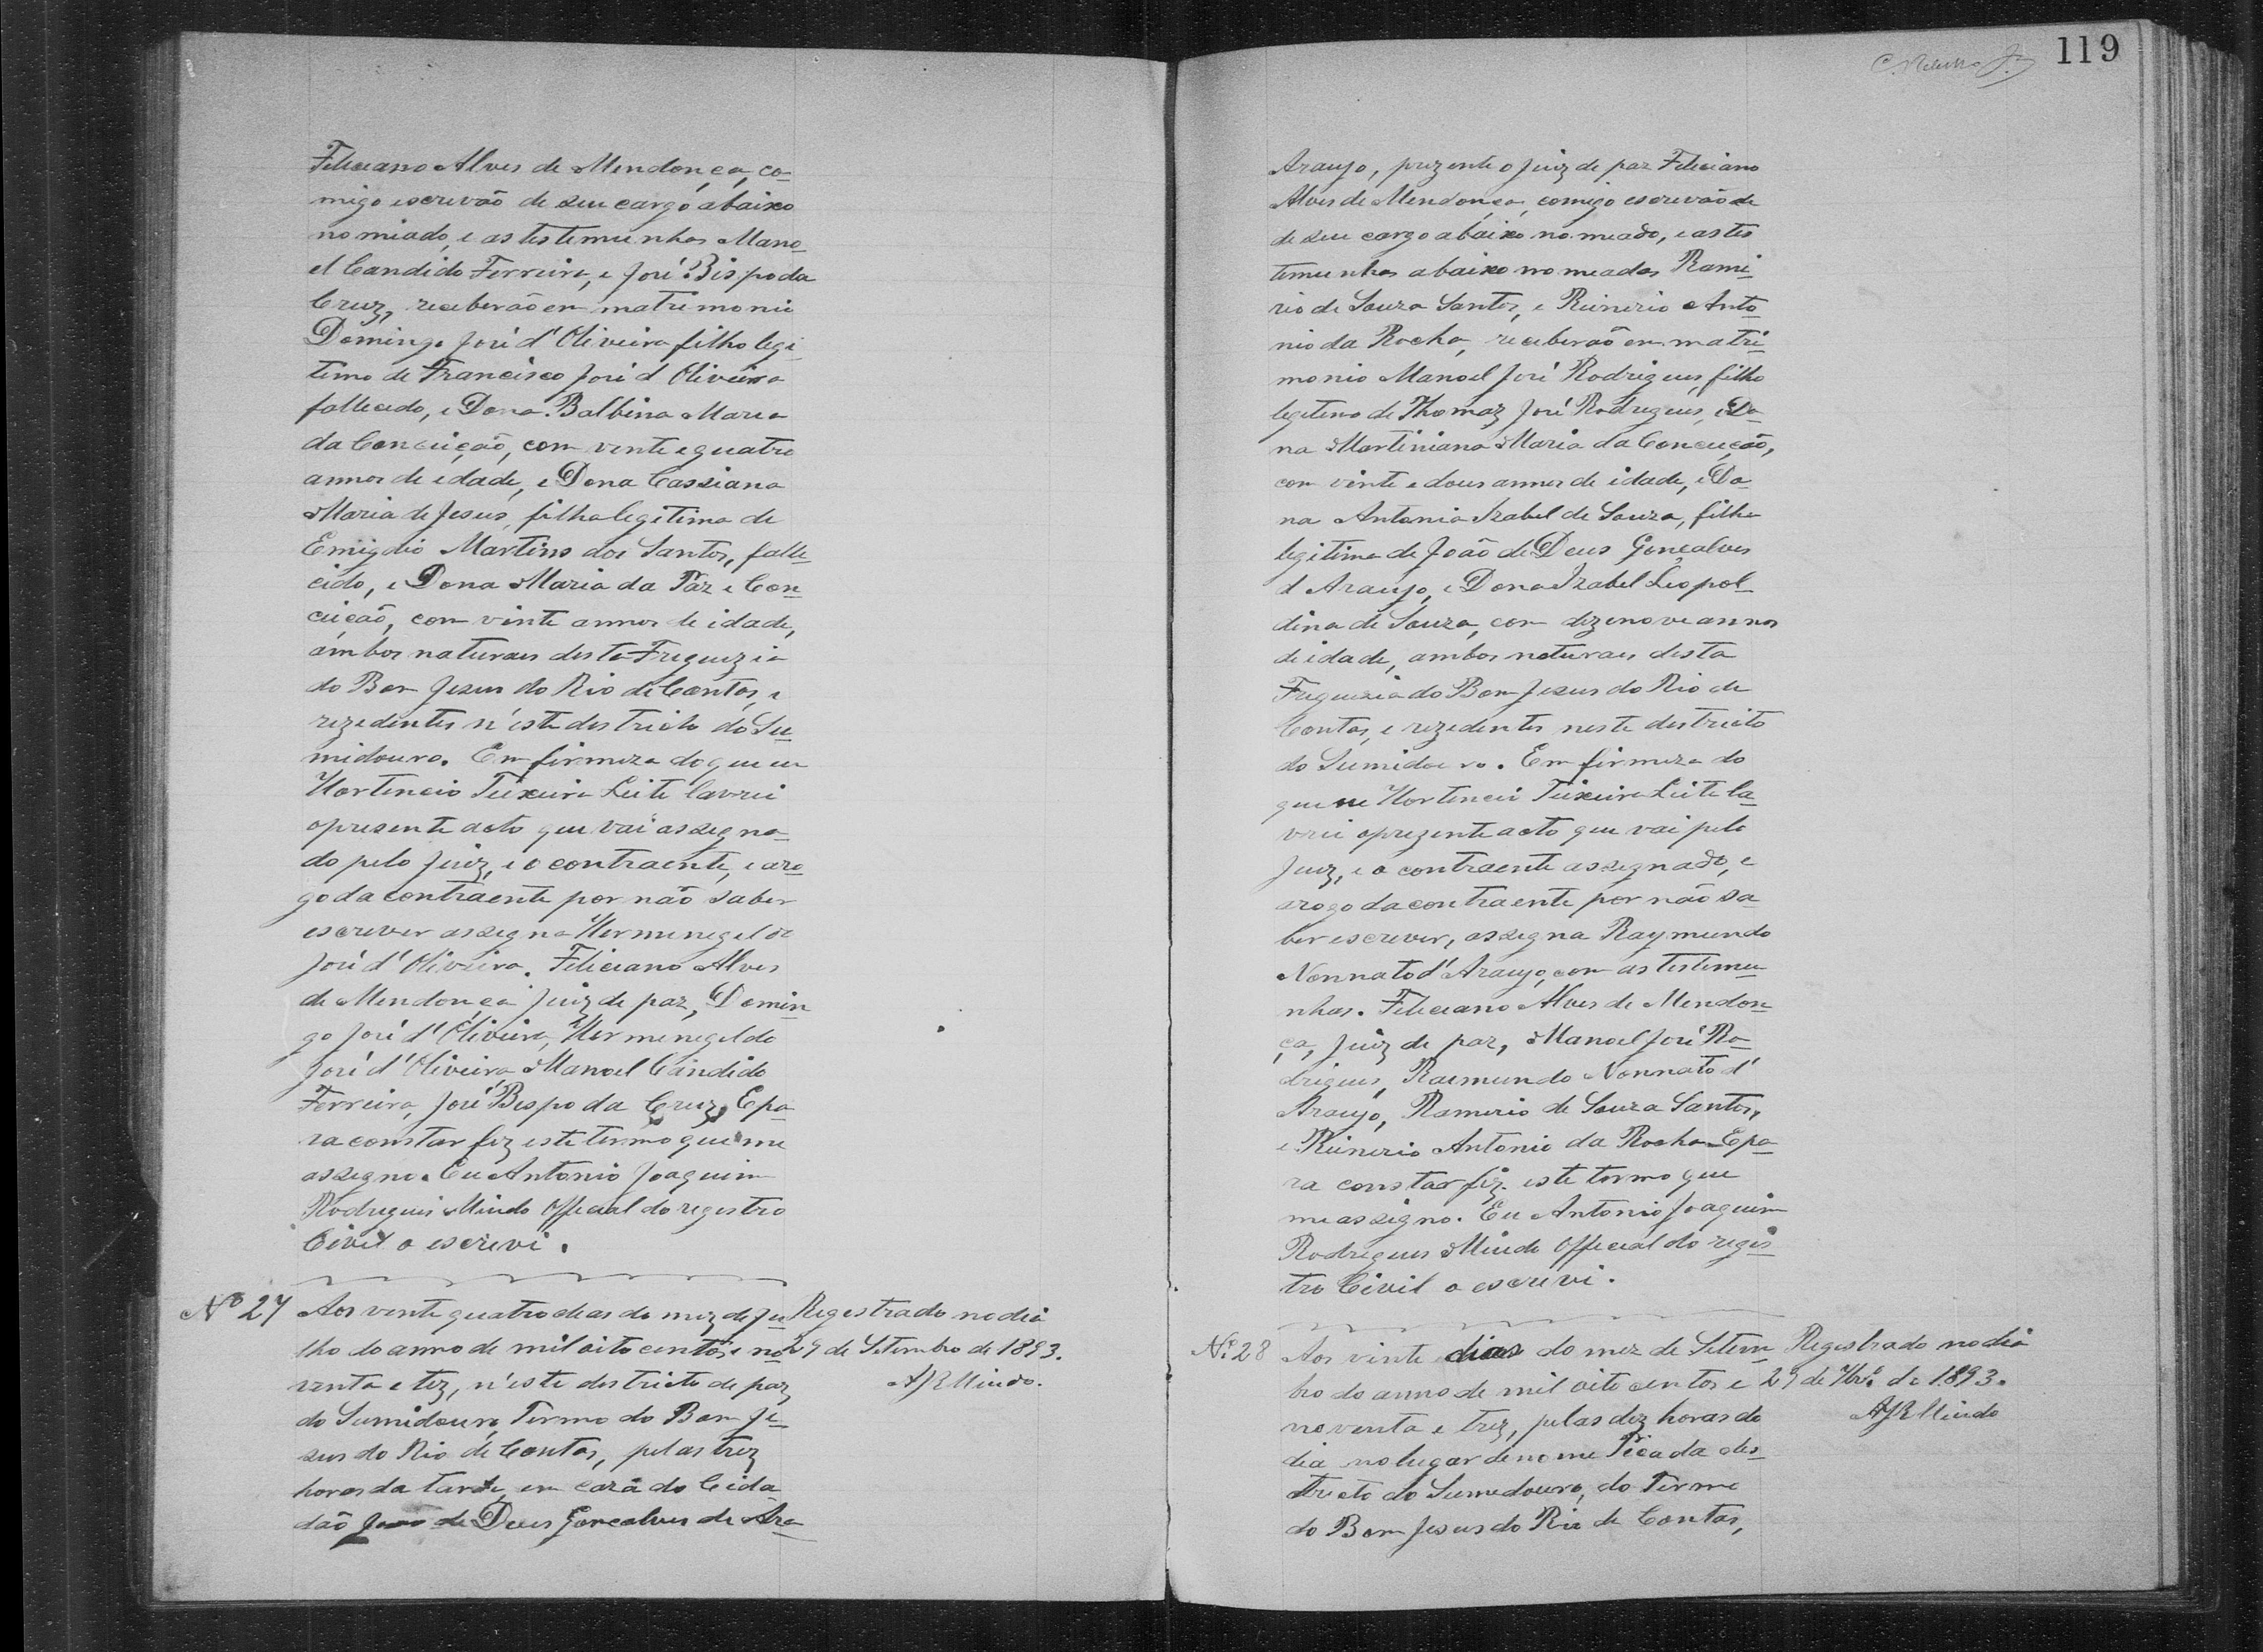 Feliciano Alves de Mendonça, co-
migo escrevão de seu cargo abaixo
nomiado, e as testemunhas Mano-
el Candido Ferreira, e José Bispo da
Cruz, receberão em matrimonio
Domingo José d'Oliveira filho legi-
timo de Francisco José d Oliveira
fallecido, e Dona Balbina Maria
da Conceição, com vente e quatro
annos de edade, e Dona Cassiana
Maria de Jesus, filha legetima de
Emigdio Martins dos Santos, falle-
cido, e Dona Maria da Paz e Con-
ceição, com vinte annos de idade,
ambos naturaes desta Freguezia
do Bom Jesus do Rio de Contas, e
rezedentes n'este destricto do Su-
midouro. Em firmeza do que eu
Hortencio Teixeira Leite lavrei
o presente acto que vai assegna-
do pelo Juiz, e o contraente, e aro-
go da contraente por não saber
escrever assegna Hermenegildo
José d'Oliveira. Feliciano Alves
de Mendonça Juiz de paz, Domin-
go José d'Oliveira, Hermenegeldo
José d'Oliveira Manoel Candido
Ferreira, José Bespo da Cruz, E pa-
ra constar fiz este termo que me
assegno. Eu Antonio Joaquim
Rodrigues Miudo Official do registro
Civil o escrevi.
Nº 27 Aos vente quatro deas do mez de Ju-
lho do anno de mil oito centos e no-
venta e trez, n'este destricto de paz
do Sumidouro, Termo do Bom Je-
sus do Rio de Contas, pelas trez
horas da tarde, em caza do Cida-
dão João de Deus Goncalves de Ara-
Regestrado no dia
29 de Setembro de 1893.
AJRMiudo.
119
Araujo, prezente o Juiz de paz Feliciano
Alves de Mendonça, comigo escrevão de
de seu cargo abaixo nomeado, e as tes
temunhas abaixo nomeadas Rami-
rio de Souza Santos, e Reinerio Anto-
nio da Rocha, receberão em matri-
monio Manoel José Rodrigues, filho
legetimo de Thomaz José Rodrigues, e Do-
na Martiniana Maria da Conceição,
com vinte e dous annos de idade, e Do-
na Antonia Izabel de Souza, filha
legitima de João de Deus Gonçalves
d Araujo, e Dona Izabel Leopol-
dina de Souza, com dezenove annos
de idade, ambos naturaes desta
Freguezia do Bom Jesus do Rio de
Contas, e rezedentes neste destricto
do Sumidouro. Em firmeza do
que eu Hortencio Teixeira Leite la-
vrei o prezente acto que vai pelo
Juiz, e o contraente assegnado, e
arogo da contraente por não sa-
ber escrever, assegna Raymundo
Nonnato d'Araujo, com as testemu-
nhas. Feleciano Alves de Mendon-
ça, Juiz de paz, Manoel José Ro-
drigues, Raemundo Nonnato d'
Araujo, Ramerio de Souza Santos,
e Reinerio Antonio da Rocha. E pa-
ra constar fiz este termo que
me assegno. Eu Antonio Joaquim
Rodrigues Miudo Official do regis-
tro Civil o escrevi.
Nº 28 Aos vinte dias do mez de Setem-
bro do anno de mil oito centos e
noventa e trez, pelas dez horas do
dia no lugar denome Picada des-
tricto do Sumedouro, do Termo
do Bom Jesus do Rio de Contas,
Registrado no dia
29 de 7brº de 1893.
AJRMiudo